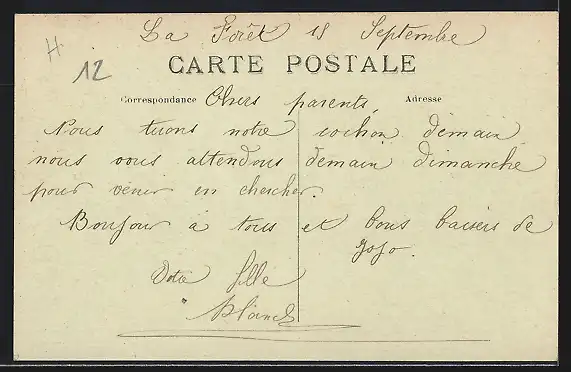 La Forêt 18 Septembre
H
12
CARTE POSTALE
Correspondance Chers parents, Adresse
Nous tuons notre cochon demain
nous vous attendons demain dimanche
pour venir en chercher.
Bonjour à tous et bons baisers de
Jojo.
Votre fille
Blanch